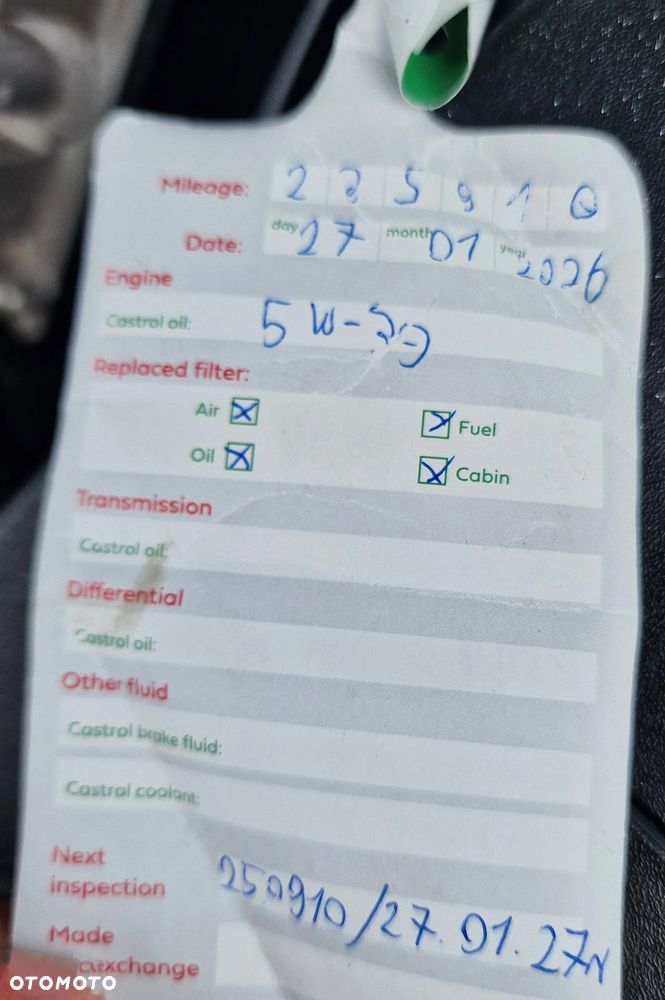 Mileage: 2 3 5 9 1 0
Date: day 27 month 01 year 2026
Engine
Castrol oil: 5W-30
Replaced filter:
Air Fuel
Oil Cabin
Transmission
Castrol oil:
Differential
Castrol oil:
Other fluid
Castrol brake fluid:
Castrol coolant:
Next
inspection 250910/27.01.27r
Made
exchange
OTOMOTO